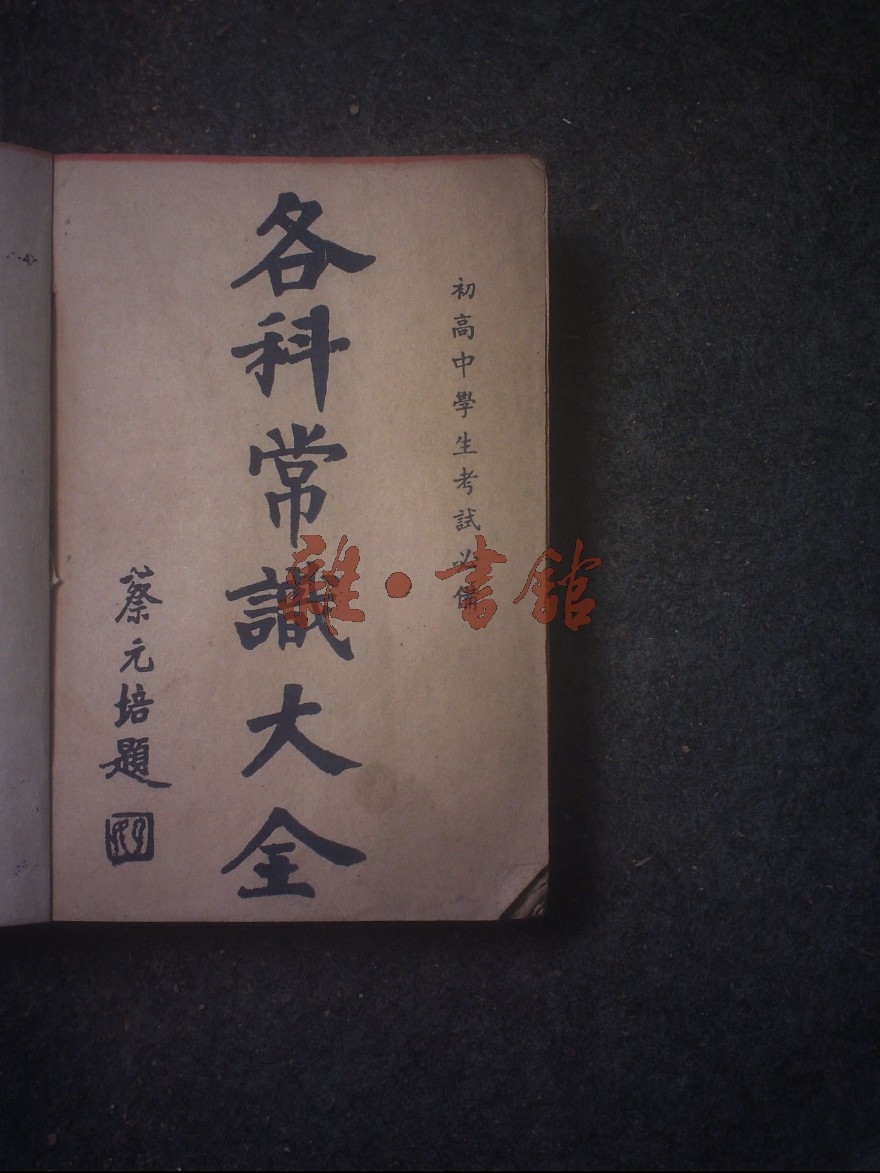 初高中學生考試必備
各科常識大全
蔡元培題
雜·書館